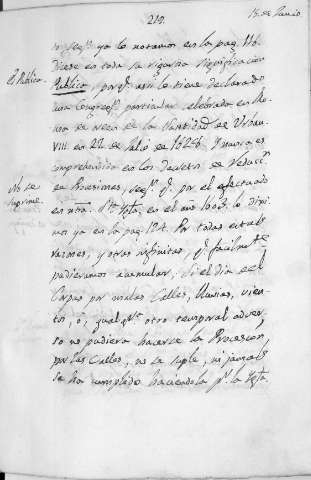 214.
15. de Junio.
ya lo notamos en la pag. 
en toda su rigurosa significacion
Es Publica.
Publica, porq.e assi lo tiene declarado
una Congreg.n particular, celebrada en Ro-
ma de orden de la Santidad de Urbano
VIII. en 22. de Julio de Y nunca es
comprehendida en los Decretos de Reducc.n
No se
suprime.
de Procesiones, seg.n q.e por el efectuado
en nra. S.ta Ygla. en el año lo diji-
mos ya en la pag. 194. Por todas estas
razones, y otras infinitas, q.e facilm.te
pudieramos acumular, si el dia del
Corpus por malas Calles, lluvias, vien-
tos, ó, qualq.r otro temporal adver-
so no pudiera hacerse la Procession
por las Calles, no la suple, ni jamas
se ha cumplido haciendola p.r la Ygla.